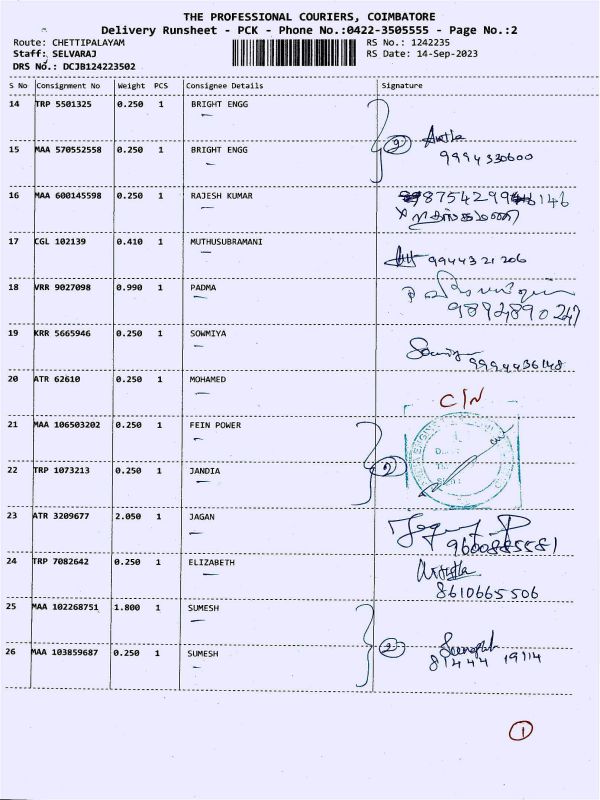 THE PROFESSIONAL COURIERS, COIMBATORE
Delivery Runsheet - PCK - Phone No.:0422-3505555 - Page No.:2
Route: CHETTIPALAYAM RS No.: 1242235
Staff: SELVARAJ RS Date: 14-Sep-2023
DRS No.: DCJB124223502
S No Consignment No Weight PCS Consignee Details Signature
14 TRP 5501325 0.250 1 BRIGHT ENGG
2
9994330600
15 MAA 570552558 0.250 1 BRIGHT ENGG
16 MAA 600145598 0.250 1 RAJESH KUMAR
17 CGL 102139 0.410 1 MUTHUSUBRAMANI
9944321206
18 VRR 9027098 0.990 1 PADMA
9894890247
19 KRR 5665946 0.250 1 SOWMIYA
9994436148
20 ATR 62610 0.250 1 MOHAMED
C/N
21 MAA 106503202 0.250 1 FEIN POWER
2
22 TRP 1073213 0.250 1 JANDIA
23 ATR 3209677 2.050 1 JAGAN
9600885581
24 TRP 7082642 0.250 1 ELIZABETH
8610665506
25 MAA 102268751 1.800 1 SUMESH
2
26 MAA 103859687 0.250 1 SUMESH
81444 19114
1